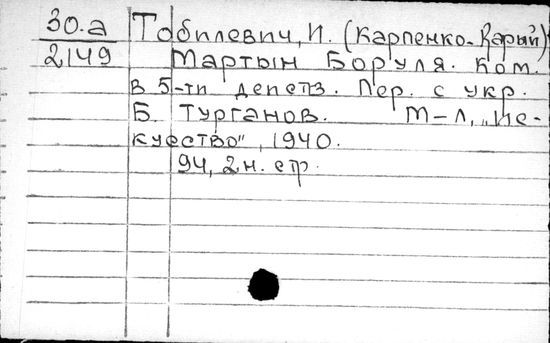 30.а Тобилевич, И. (Карпенко-Карый)
2149 Мартын Боруля. Ком.
в 5-ти действ. Пер. с укр.
Б. Турганов. М-Л, „Ис-
кусство", 1940.
94, 2 н. стр.